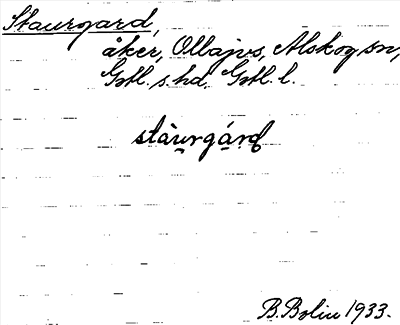 Staurgard,
åker, Ollajvs, Alskog sn,
Gotl. s. hd, Gotl. l.
stàu̯rgárd
B. Bolin 1933.